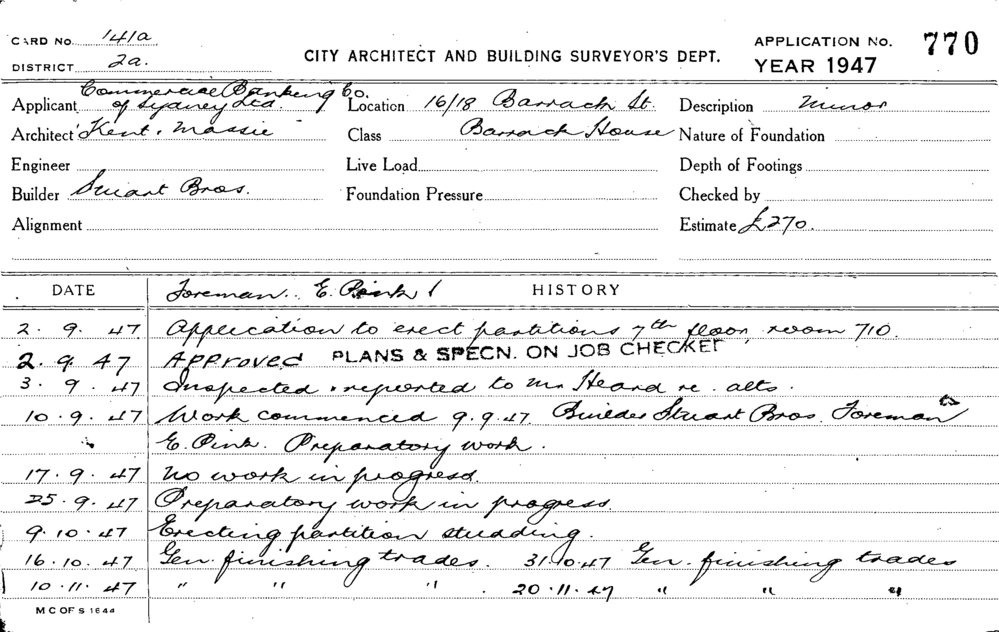 CARD No. 141a
DISTRICT 2a.
CITY ARCHITECT AND BUILDING SURVEYOR'S DEPT.
APPLICATION No. 770
YEAR 1947
Applicant Commercial Banking Co. of Sydney Ltd.
Location 16/18 Barrack St.
Description Minor
Architect Kent & Massie
Class Barrack House
Nature of Foundation
Engineer
Live Load
Depth of Footings
Builder Stuart Bros.
Foundation Pressure
Checked by
Alignment
Estimate £270.
DATE Foreman. E. Pink HISTORY
2. 9. 47 Application to erect partitions 7th floor, room 710.
2. 9. 47 APPROVED PLANS & SPECN. ON JOB CHECKED
3. 9. 47 Inspected & reported to Mr Heard re. alts.
10. 9. 47 Work commenced 9.9.47. Builder Stuart Bros. Foreman
E. Pink. Preparatory work.
17. 9. 47 No work in progress.
25. 9. 47 Preparatory work in progress.
9. 10. 47 Erecting partition studding.
16. 10. 47 Gen. finishing trades. 31.10.47 Gen. finishing trades
10. 11. 47 " " " . 20.11.47 " " "
M C OF S 1644